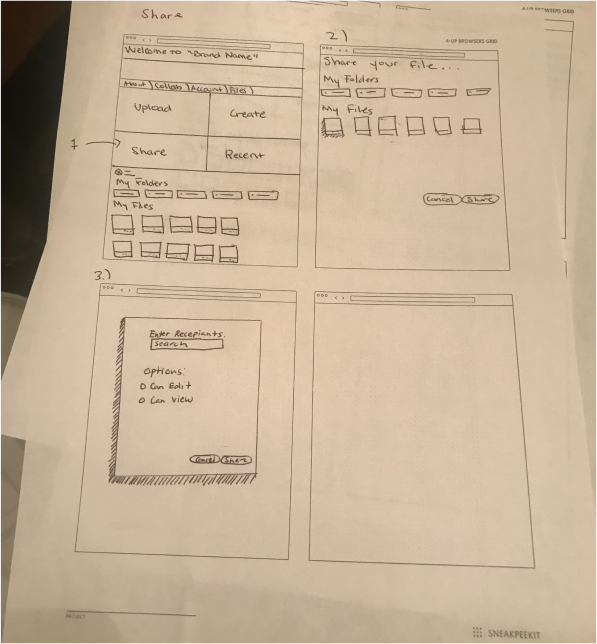 Share
4-UP BROWSERS GRID
Welcome to "Brand Name"
About Collab Account Files
Upload
Create
1
Share
Recent
My Folders
My Files
2)
4-UP BROWSERS GRID
Share your file...
My Folders
My Files
Cancel Share
3.)
Enter Recepiants:
Search
Options:
O Can Edit
O Can View
Cancel Share
PROJECT
SNEAKPEEKIT